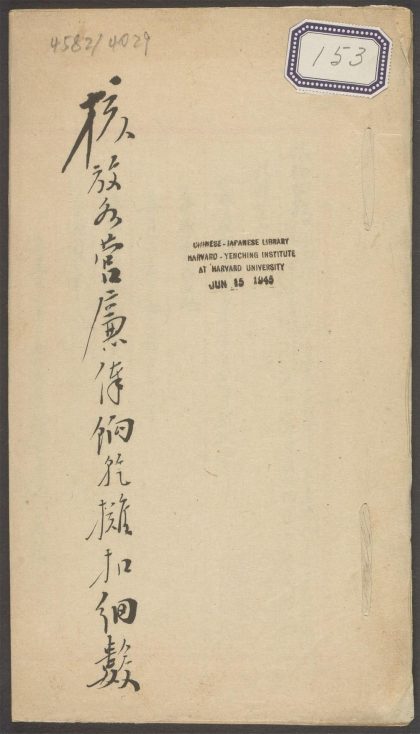 4582/4029
153
核放各營廉俸餉乾攤扣細數
CHINESE - JAPANESE LIBRARY
HARVARD - YENCHING INSTITUTE
AT HARVARD UNIVERSITY
JUN 15 1945